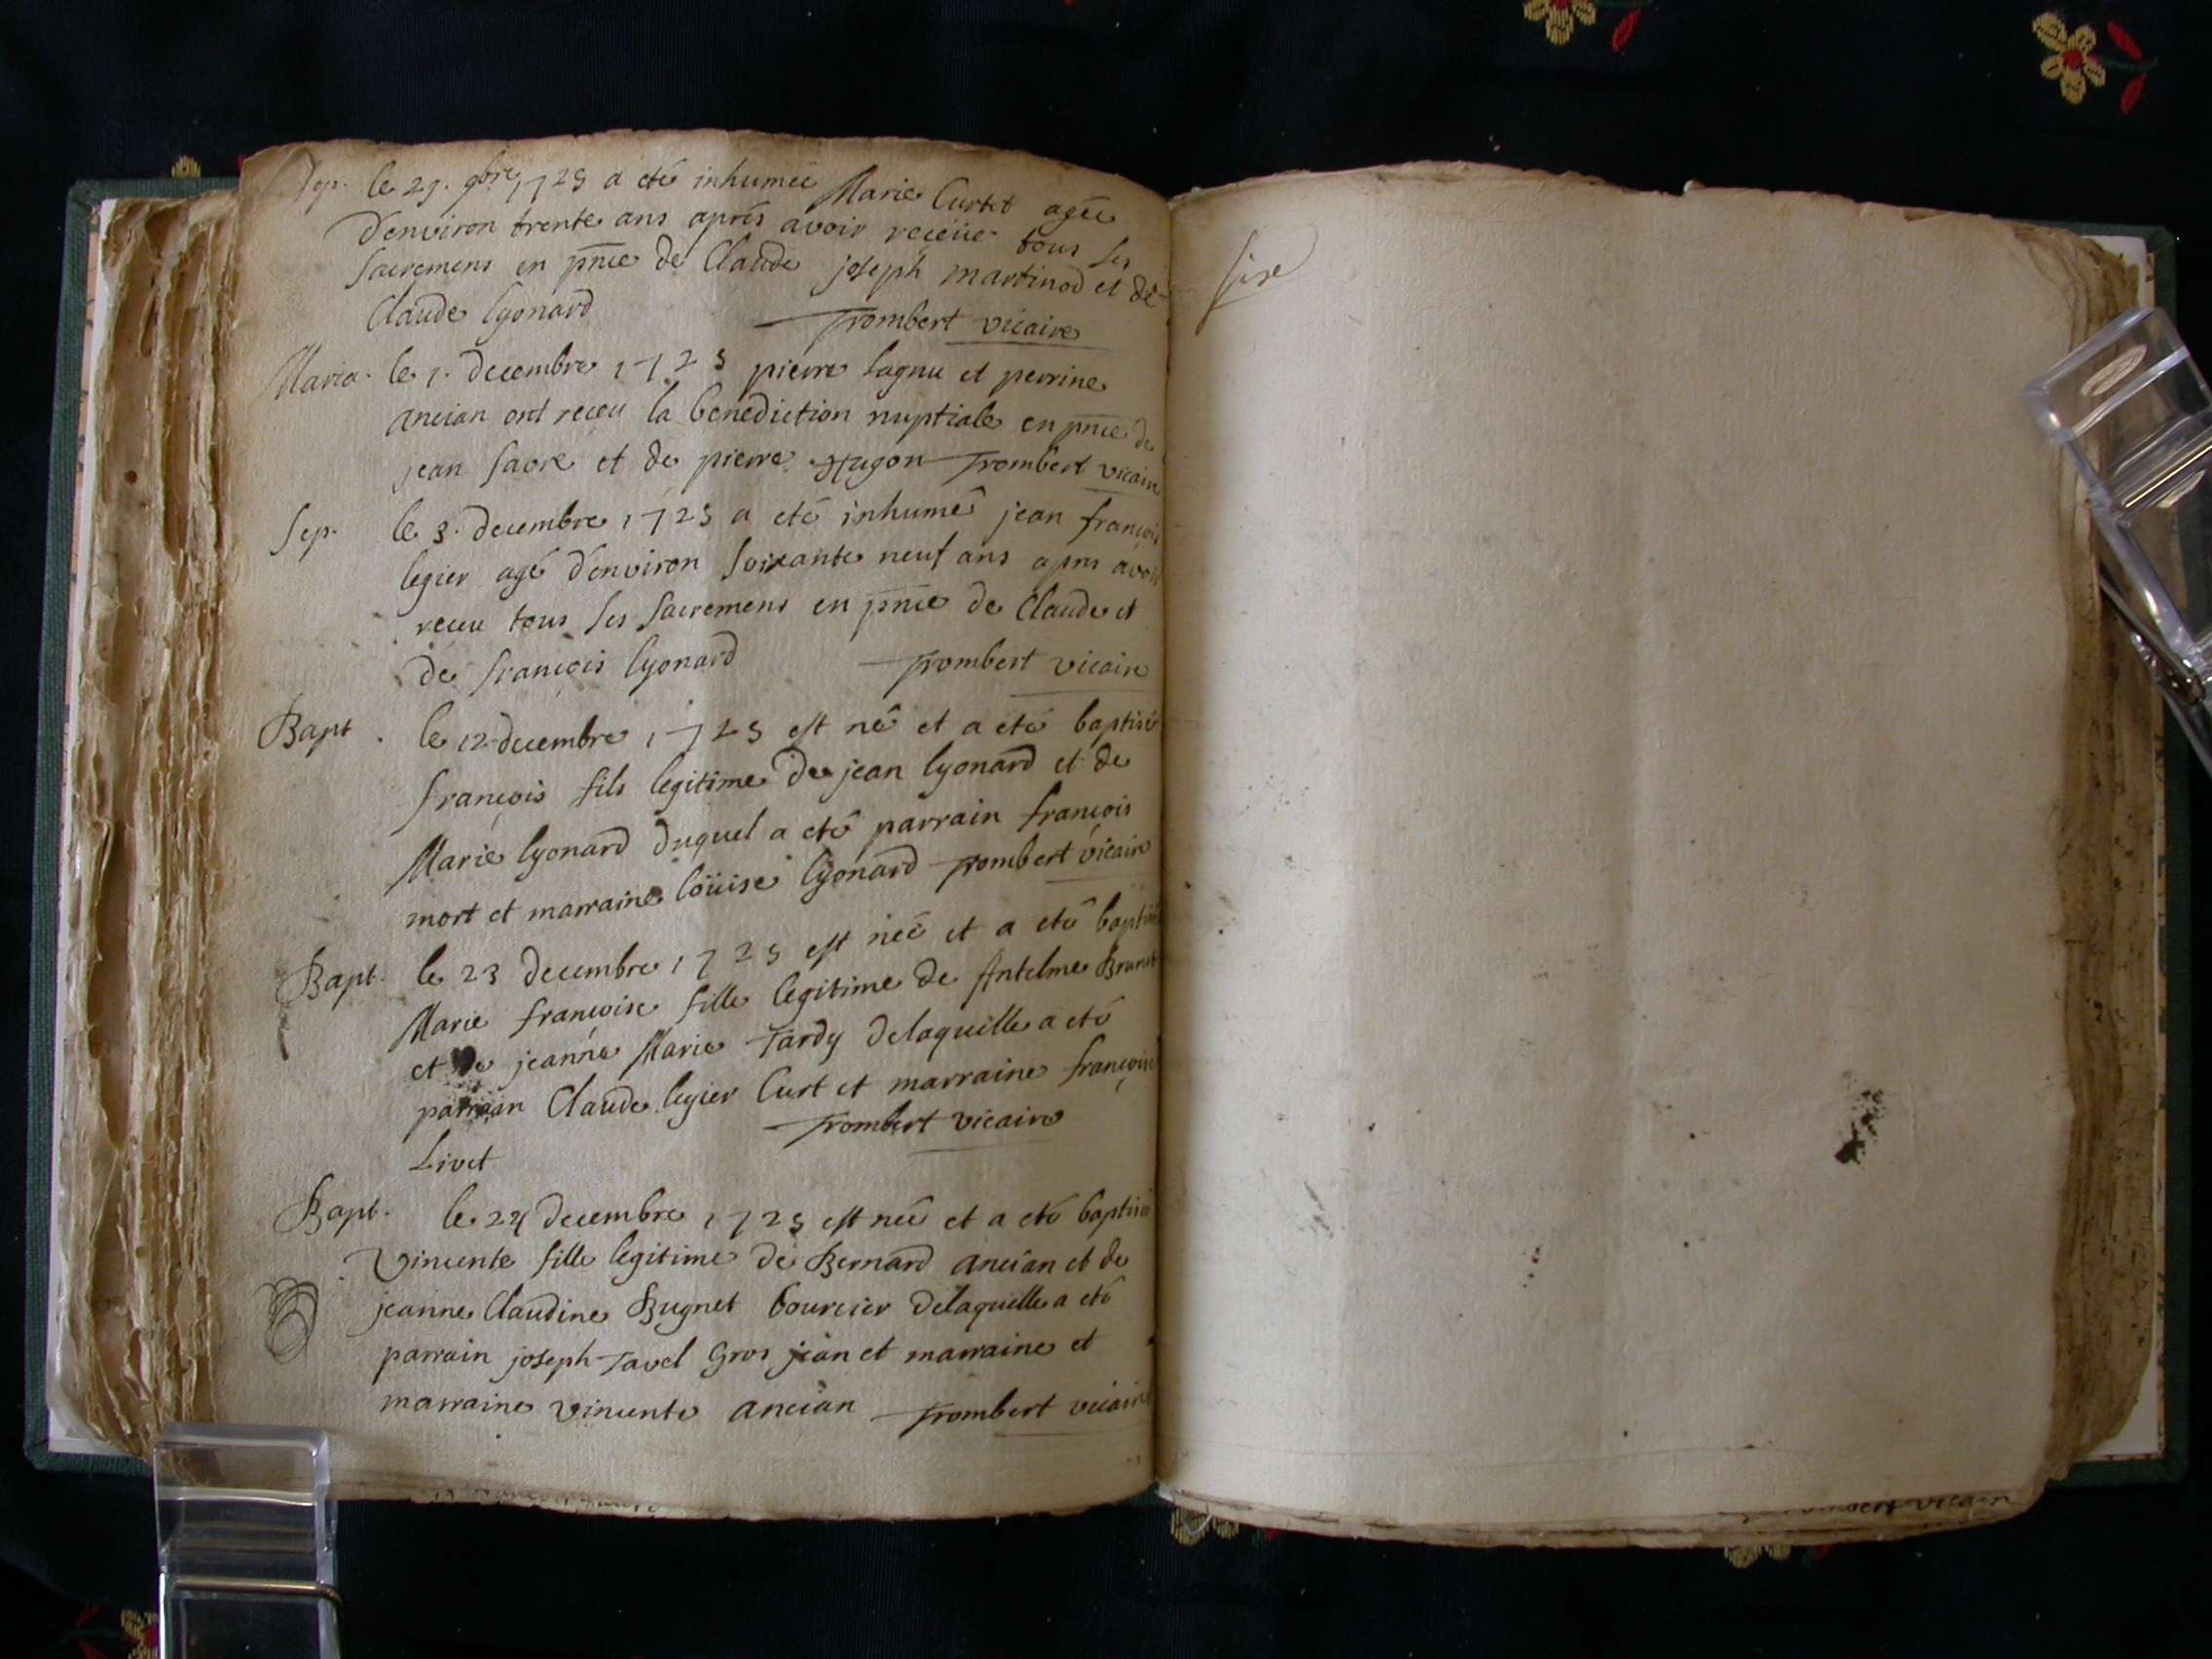 Sep. le 29. 9bre 1725 a eté inhumée Marie Curtet agée
d'environ trente ans aprés avoir receüe tous ses
sacremens en pnce de Claude joseph martinod et de
Claude lyonard Trombert vicaire
Maria. le 1. decembre 1725 pierre lagnu et perrine
ancian ont receu la benediction nuptiale en pnce de
jean favre et de pierre Hugon Trombert vicaire
Sep. le 3. decembre 1725 a eté inhumé jean françois
legier agé d'environ soixante neuf ans apres avoir
receu tous ses sacremens en pnce de Claude et
de françois lyonard Trombert vicaire
Bapt. le 12 decembre 1725 est né et a eté baptisé
françois fils legitime de jean lyonard et de
Marie lyonard duquel a eté parrain françois
mort et marraine loüise lyonard Trombert vicaire
Bapt. le 23 decembre 1725 est neé et a eté baptisé
Marie françoise fille legitime de Antelme Brunet
et de jeanne Marie Tardy delaquelle a eté
parrain Claude legier Curt et marraine françoise
Livet Trombert vicaire
Bapt. le 24 decembre 1725 est neé et a eté baptisé
vincente fille legitime de Bernard ancian et de
jeanne Claudine Bugnet bourcier delaquelle a eté
parrain joseph Tavel Gros jean et marraine et
marraine vincente ancian Trombert vicaire